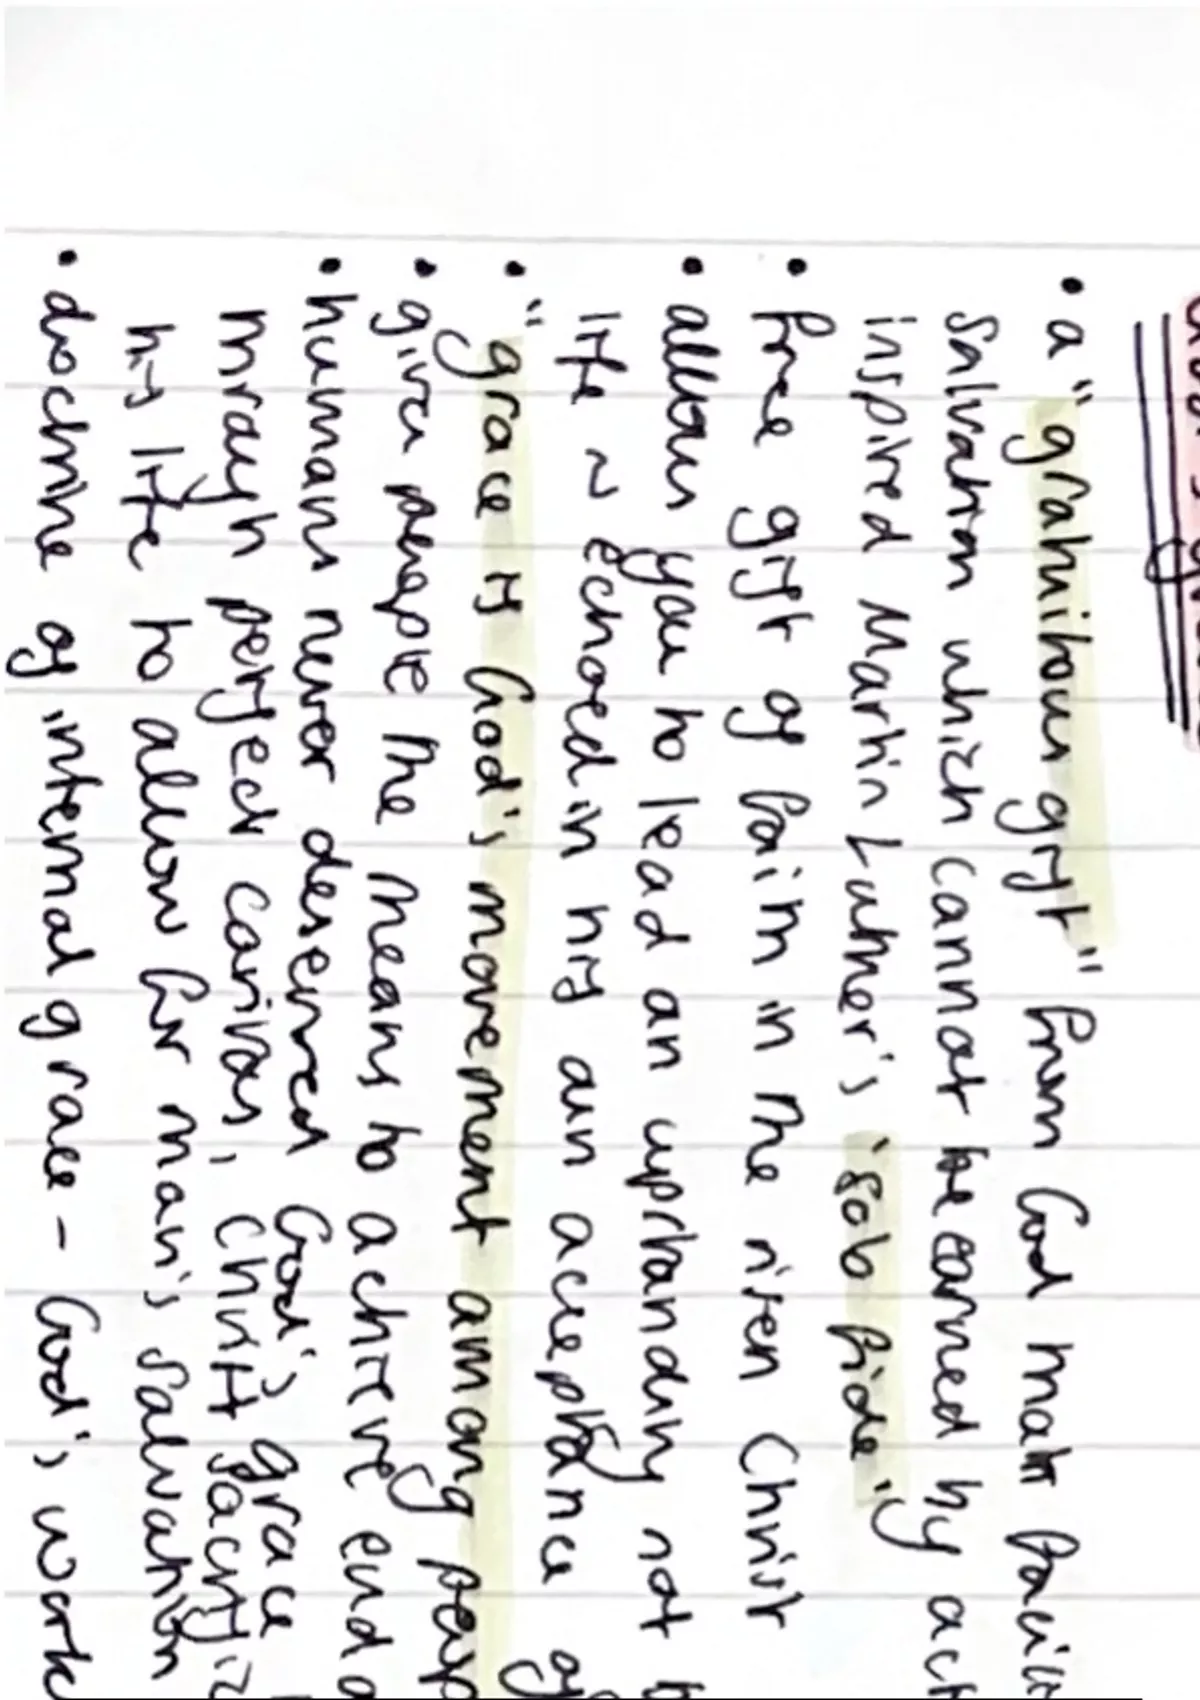 God's grace
• a "gratuitous gift" from God that facilit
salvation which cannot be earned by act
inspired Martin Luther's 'sola fide'
• free gift of faith in the risen Christ
• allows you to lead an upstanding not
life ~ echoed in his own acceptance of
• "grace is God's movement among peop
• gives people the means to achieve
• humans never deserved God's grace
through perfect caritas, Christ sacrific
his life to allow for man's salvation
• doctrine of internal grace - God's work